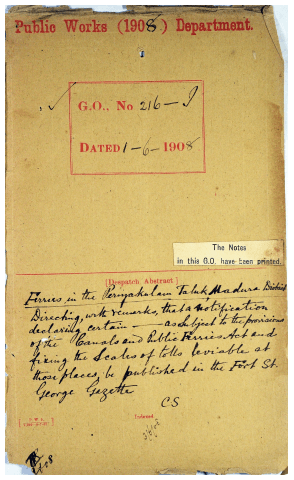 Public Works (1908) Department.
G.O., No 216-I
DATED 1-6-1908
The Notes
in this G.O. have been printed.
[Despatch Abstract]
Ferries in the Periyakulam Taluk Madura District
Directing, with remarks, that a notification
declaring certain — as subject to the provisions
of the Canals and Public Ferries Act and
fixing the Scales of tolls leviable at
those places, be published in the Fort St.
George Gazette
C S
Indexed